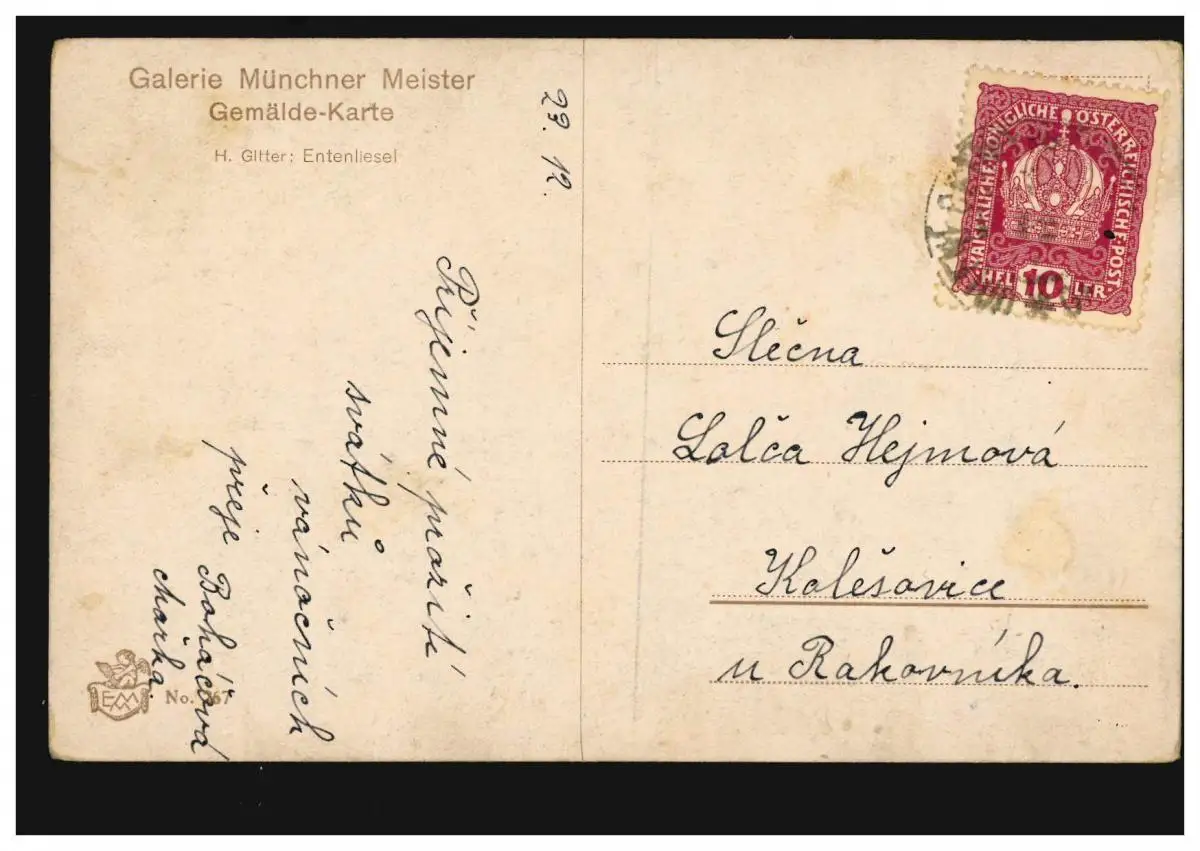 Galerie Münchner Meister
Gemälde-Karte
H. Gitter: Entenliesel
Příjemné pažití
svátků
vánočních
přeje Boháčová
No.
KAISERLICHE KÖNIGLICHE ÖSTERREICHISCHE POST.
10 HELLER
Slečna
Lolča Hejmová
Kolěšovice
u Rakovníka.